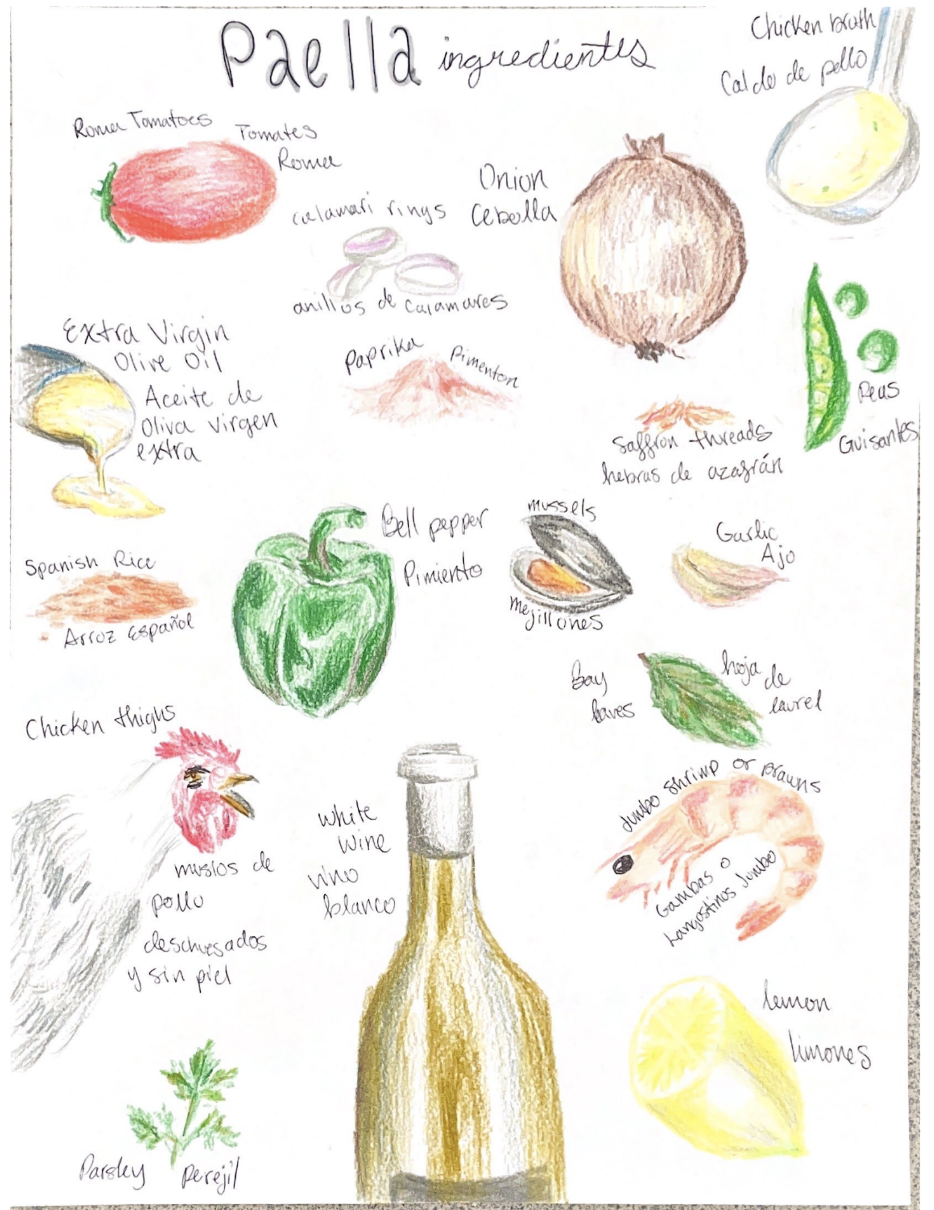 Paella ingredientes
Chicken broth
Caldo de pollo
Roma Tomatoes
Tomates
Roma
calamari rings
anillos de calamares
Onion
Cebolla
Extra Virgin
Olive Oil
Aceite de
Oliva Virgen
extra
Paprika
Pimenton
Saffron threads
hebras de azafrán
Peas
Guisantes
Spanish Rice
Arroz Español
Bell pepper
Pimiento
mussels
mejillones
Garlic
Ajo
Bay
leaves
hoja de
laurel
Chicken thighs
muslos de
pollo
deschuesados
y sin piel
white
wine
vino
blanco
Jumbo shrimp or prawns
Gambas o
Langostinos Jumbo
lemon
limones
Parsley
Perejil